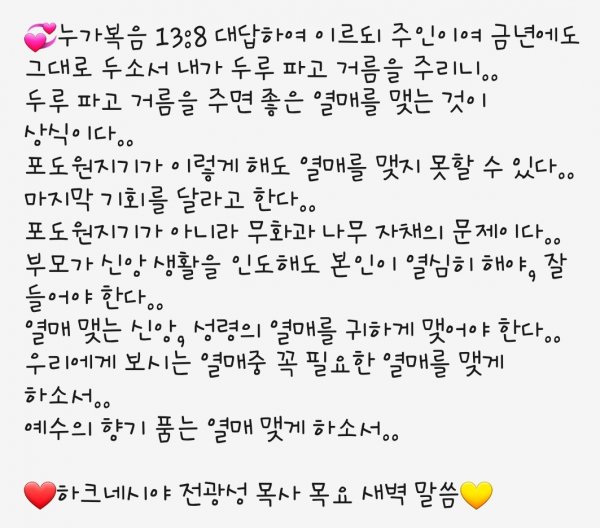 💞누가복음 13:8 대답하여 이르되 주인이여 금년에도
그대로 두소서 내가 두루 파고 거름을 주리니..
두루 파고 거름을 주면 좋은 열매를 맺는 것이
상식이다..
포도원지기가 이렇게 해도 열매를 맺지 못할 수 있다..
마지막 기회를 달라고 한다..
포도원지기가 아니라 무화과 나무 자채의 문제이다..
부모가 신앙 생활을 인도해도 본인이 열심히 해야, 잘
들어야 한다..
열매 맺는 신앙, 성령의 열매를 귀하게 맺어야 한다..
우리에게 보시는 열매중 꼭 필요한 열매를 맺게
하소서..
예수의 향기 품는 열매 맺게 하소서..
❤️하크네시야 전광성 목사 목요 새벽 말씀💛